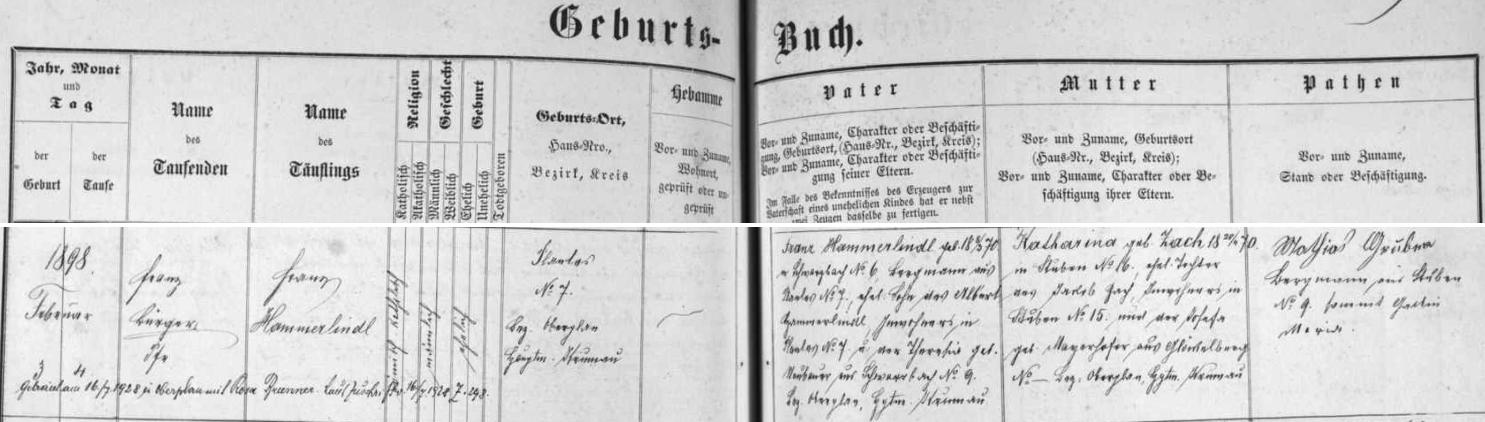 Geburts-Buch.
Jahr, Monat
und
Tag
der
Geburt
der
Taufe
Name
des
Taufenden
Name
des
Täuflings
Religion
Katholisch
Akatholisch
Geschlecht
Männlich
Weiblich
Geburt
Ehelich
Unehelich
Todtgeboren
Geburts-Ort,
Haus-Nro.,
Bezirk, Kreis
Hebamme
Vor- und Zuname,
Wohnort,
geprüft oder un-
geprüft
Vater
Vor- und Zuname, Charakter oder Beschäfti-
gung, Geburtsort, (Haus-Nr., Bezirk, Kreis);
Vor- und Zuname, Charakter oder Beschäfti-
gung seiner Eltern.
Im Falle des Bekenntnisses des Erzeugers zur
Vaterschaft eines unehelichen Kindes hat er nebst
zwei Zeugen dasselbe zu fertigen.
Mutter
Vor- und Zuname, Geburtsort
(Haus-Nr., Bezirk, Kreis);
Vor- und Zuname, Charakter oder Be-
schäftigung ihrer Eltern.
Pathen
Vor- und Zuname,
Stand oder Beschäftigung.
1898.
Februar
3
4
Franz
Bürger
Franz
Hammerlindl
männlich
ehelich
No 7.
Bez. Oberplan
Hptm. Krumau
Franz Hammerlindl geb.
Schwarzbach No 6 Bergmann aus
No 7., ehel. Sohn des Albert
Hammerlindl, Inwohners in
No 7. u. der Theresia geb.
Neubauer aus Schwarzbach No 9.
Bez. Oberplan, Hptm. Krumau
Katharina geb. Zach
in Stuben No 16. ehel. Tochter
des Jakob Zach, Inwohners in
Stuben No 15. und der Josefa
geb. Mayerhofer aus Glöckelberg
No — Bez. Oberplan, Hptm. Krumau
Mathias Gruber
Bergmann aus Stuben
No 9. sammt Gattin
Maria.
Getraut am 16/7 1928 zu Oberplan mit Rosa